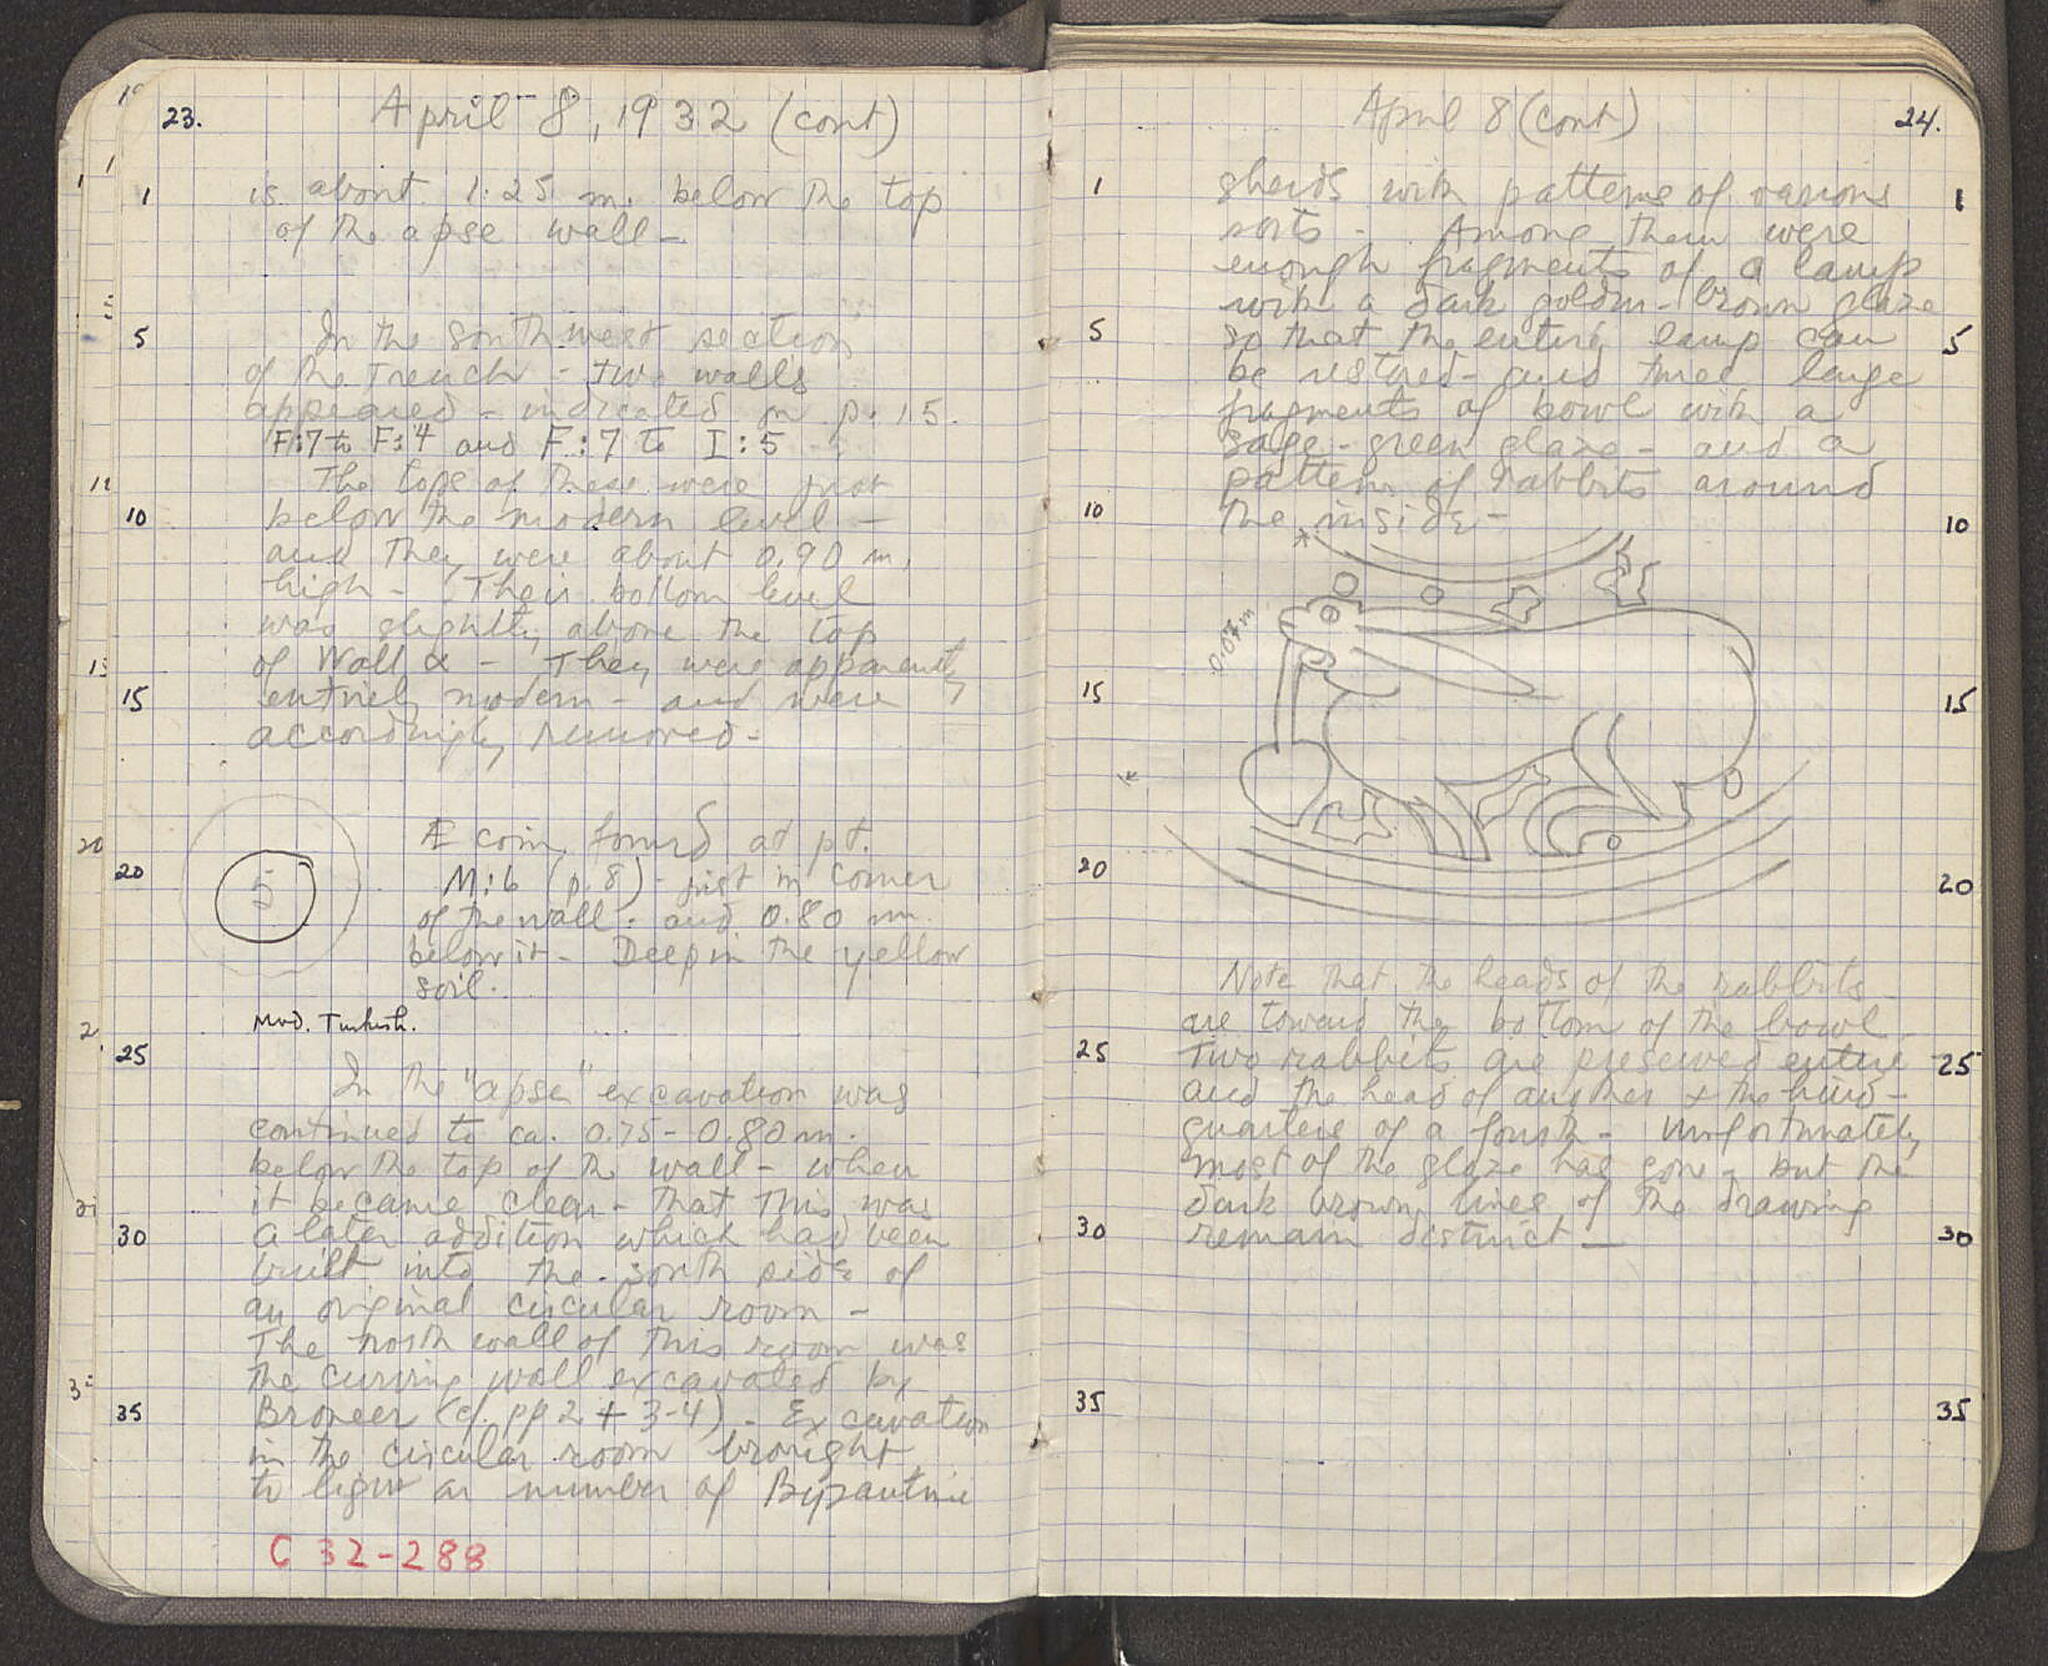 23.
April 8, 1932 (cont)
1
is about 1.25 m. below the top
of the apse wall-
5
In the southwest section
of the trench - two walls
appeared - indicated on p. 15.
F:7 to F:4 and F:7 to I:5
The tops of these were just
10
below the modern level -
and they were about 0.90 m.
high - Their bottom level
was slightly above the top
of Wall α - They were apparently
15
entirely modern - and were
accordingly removed -
Æ coin found at pt.
20
5
M:6 (p. 8) - just in corner
of the wall - and 0.80 m.
below it - Deep in the yellow
soil.
Mod. Turkish.
25
In the "apse" excavation was
continued to ca. 0.75 - 0.80 m.
below the top of the wall - when
it became clear - that this was
30
a later addition which had been
built into the south side of
an original circular room -
The north wall of this room was
the curving wall excavated by
35
Broneer (cf. pp 2 + 3-4) - Excavation
in the circular room brought
to light a number of Byzantine
C 32-288
April 8 (cont)
24.
1
sherds with patterns of various
1
sorts - Among them were
enough fragments of a lamp
with a dark golden-brown glaze
5
so that the entire lamp can
5
be restored - and three large
fragments of bowl with a
sage-green glaze - and a
pattern of rabbits around
10
the inside -
10
0.07 m
15
15
20
20
Note that the heads of the rabbits
are toward the bottom of the bowl
25
Two rabbits are preserved entire
25
and the head of another & the hind-
quarters of a fourth - Unfortunately
most of the glaze has gone - but the
dark brown lines of the drawing
30
remain distinct -
30
35
35